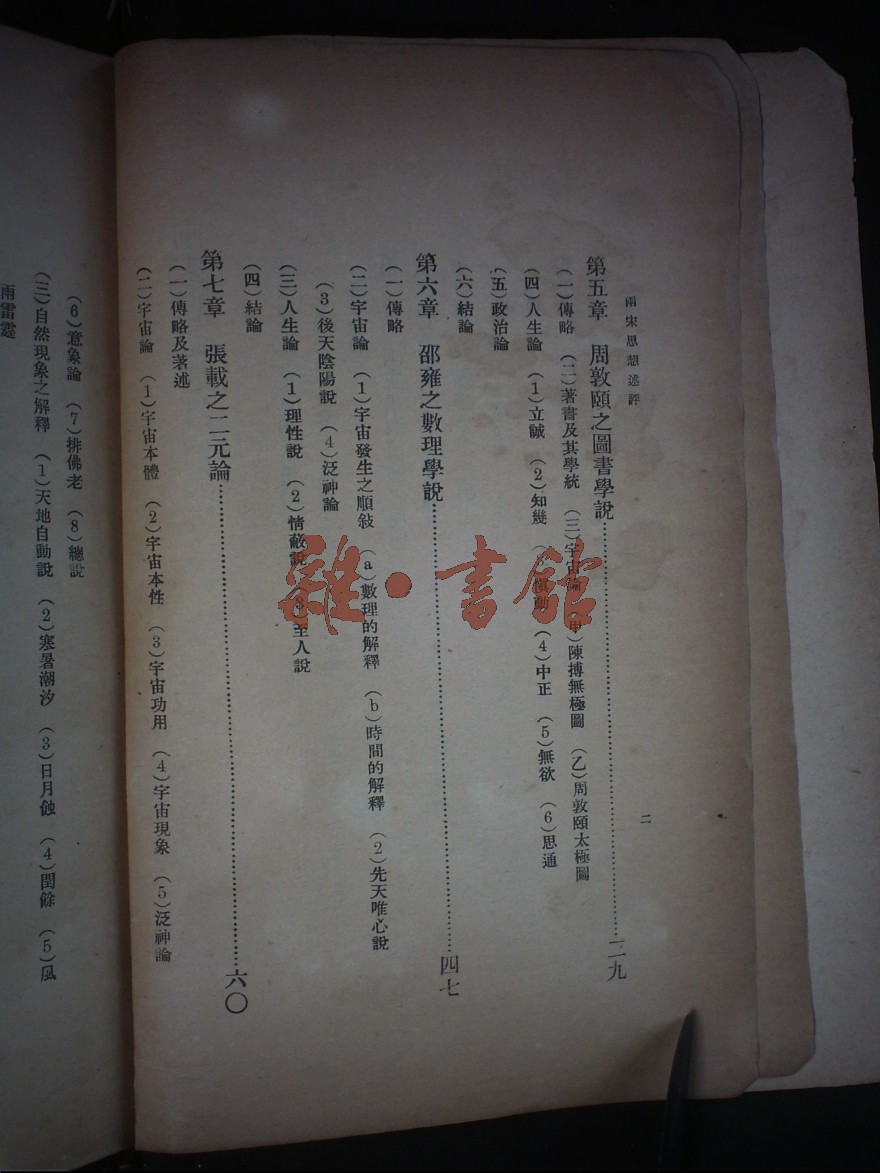 兩宋思想述評
二
第五章 周敦頤之圖書學說…………三九
(一)傳略 (二)著書及其學統 (三)宇宙論 (甲)陳摶無極圖 (乙)周敦頤太極圖
(四)人生論 (1)立誠 (2)知幾 (3)慎動 (4)中正 (5)無欲 (6)思通
(五)政治論
(六)結論
第六章 邵雍之數理學說…………四七
(一)傳略
(二)宇宙論 (1)宇宙發生之順敍 (a)數理的解釋 (b)時間的解釋 (2)先天唯心說
(3)後天陰陽說 (4)泛神論
(三)人生論 (1)理性說 (2)情蔽說 (3)至人說
(四)結論
第七章 張載之二元論…………六〇
(一)傳略及著述
(二)宇宙論 (1)宇宙本體 (2)宇宙本性 (3)宇宙功用 (4)宇宙現象 (5)泛神論
(6)意象論 (7)排佛老 (8)總說
(三)自然現象之解釋 (1)天地自動說 (2)寒暑潮汐 (3)日月蝕 (4)閏餘 (5)風
雨雷霆
雜·書館